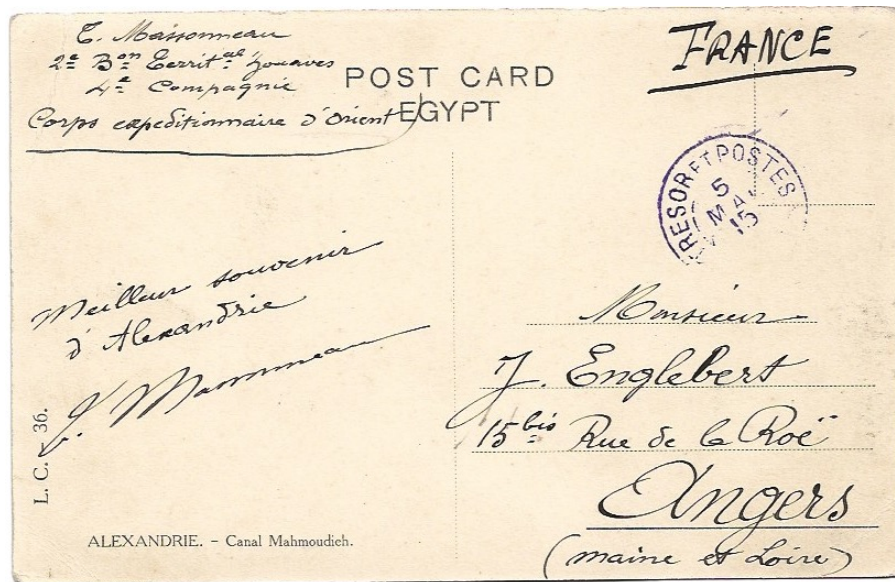 E. Maisonneau
2e Bon Territal Zouaves
4e Compagnie
Corps expeditionnaire d'Orient
POST CARD
EGYPT
FRANCE
TRESOR ET POSTES
5
MAI
15
Meilleur souvenir
d'Alexandrie
E. Maisonneau
Monsieur
J. Englebert
15bis Rue de la Roë
Angers
(maine et Loire)
L. C. - 36.
ALEXANDRIE. - Canal Mahmoudieh.